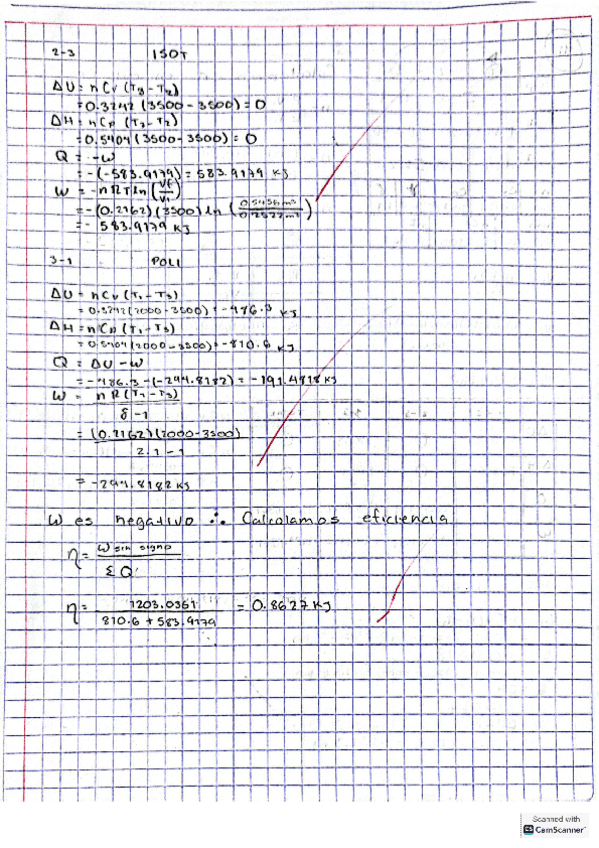 2-3 ISOT
ΔU = nCv (T3 - T2)
= 0.3242 (3500 - 3500) = 0
ΔH = nCp (T3 - T2)
= 0.5404 (3500 - 3500) = 0
Q = -W
= -(-583.9179) = 583.9179 KJ
W = -nRT ln (Vf/V1)
= -(0.2162)(3500) ln (0.5456 m³/0.2522 m³)
= - 583.9179 KJ
3-1 POLI
ΔU = nCv (T1 - T3)
= 0.3242 (2000 - 3500) = -486.3 KJ
ΔH = nCp (T1 - T3)
= 0.5404 (2000 - 3500) = -810.6 KJ
Q = ΔU - W
= -486.3 - (-294.8182) = -191.4818 KJ
W = nR(T1 - T3)
δ - 1
= (0.2162)(2000 - 3500)
2.1 - 1
= -294.8182 KJ
W es negativo ∴ Calculamos eficiencia
η = W sin signo
Σ Q
η = 1203.0361 = 0.8627 KJ
810.6 + 583.9179
Scanned with
CS CamScanner